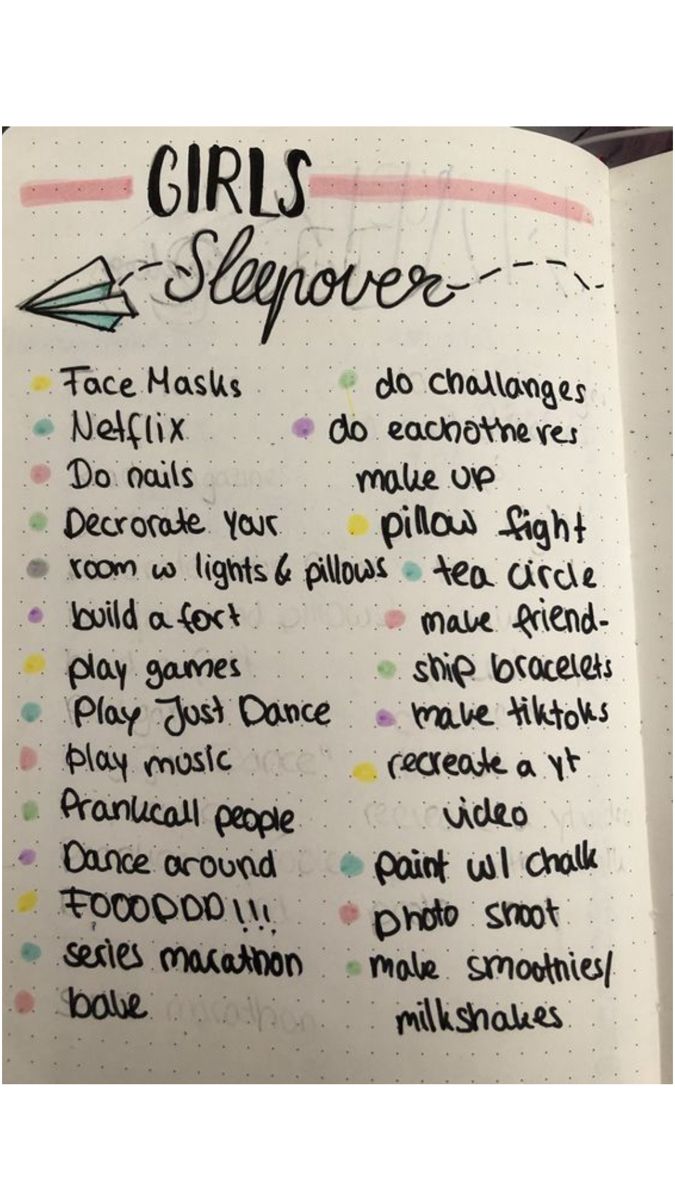 GIRLS
Sleepover
Face Masks
Netflix
Do nails
Decrorate your
room w lights & pillows
build a fort
play games
Play Just Dance
play music
Prankcall people
Dance around
FOOODDD!!!
series marathon
bake
do challanges
do eachotheres
make up
pillow fight
tea circle
make friend-
ship bracelets
make tiktoks
recreate a yt
video
paint w/ chalk
photo shoot
make smoothies/
milkshakes